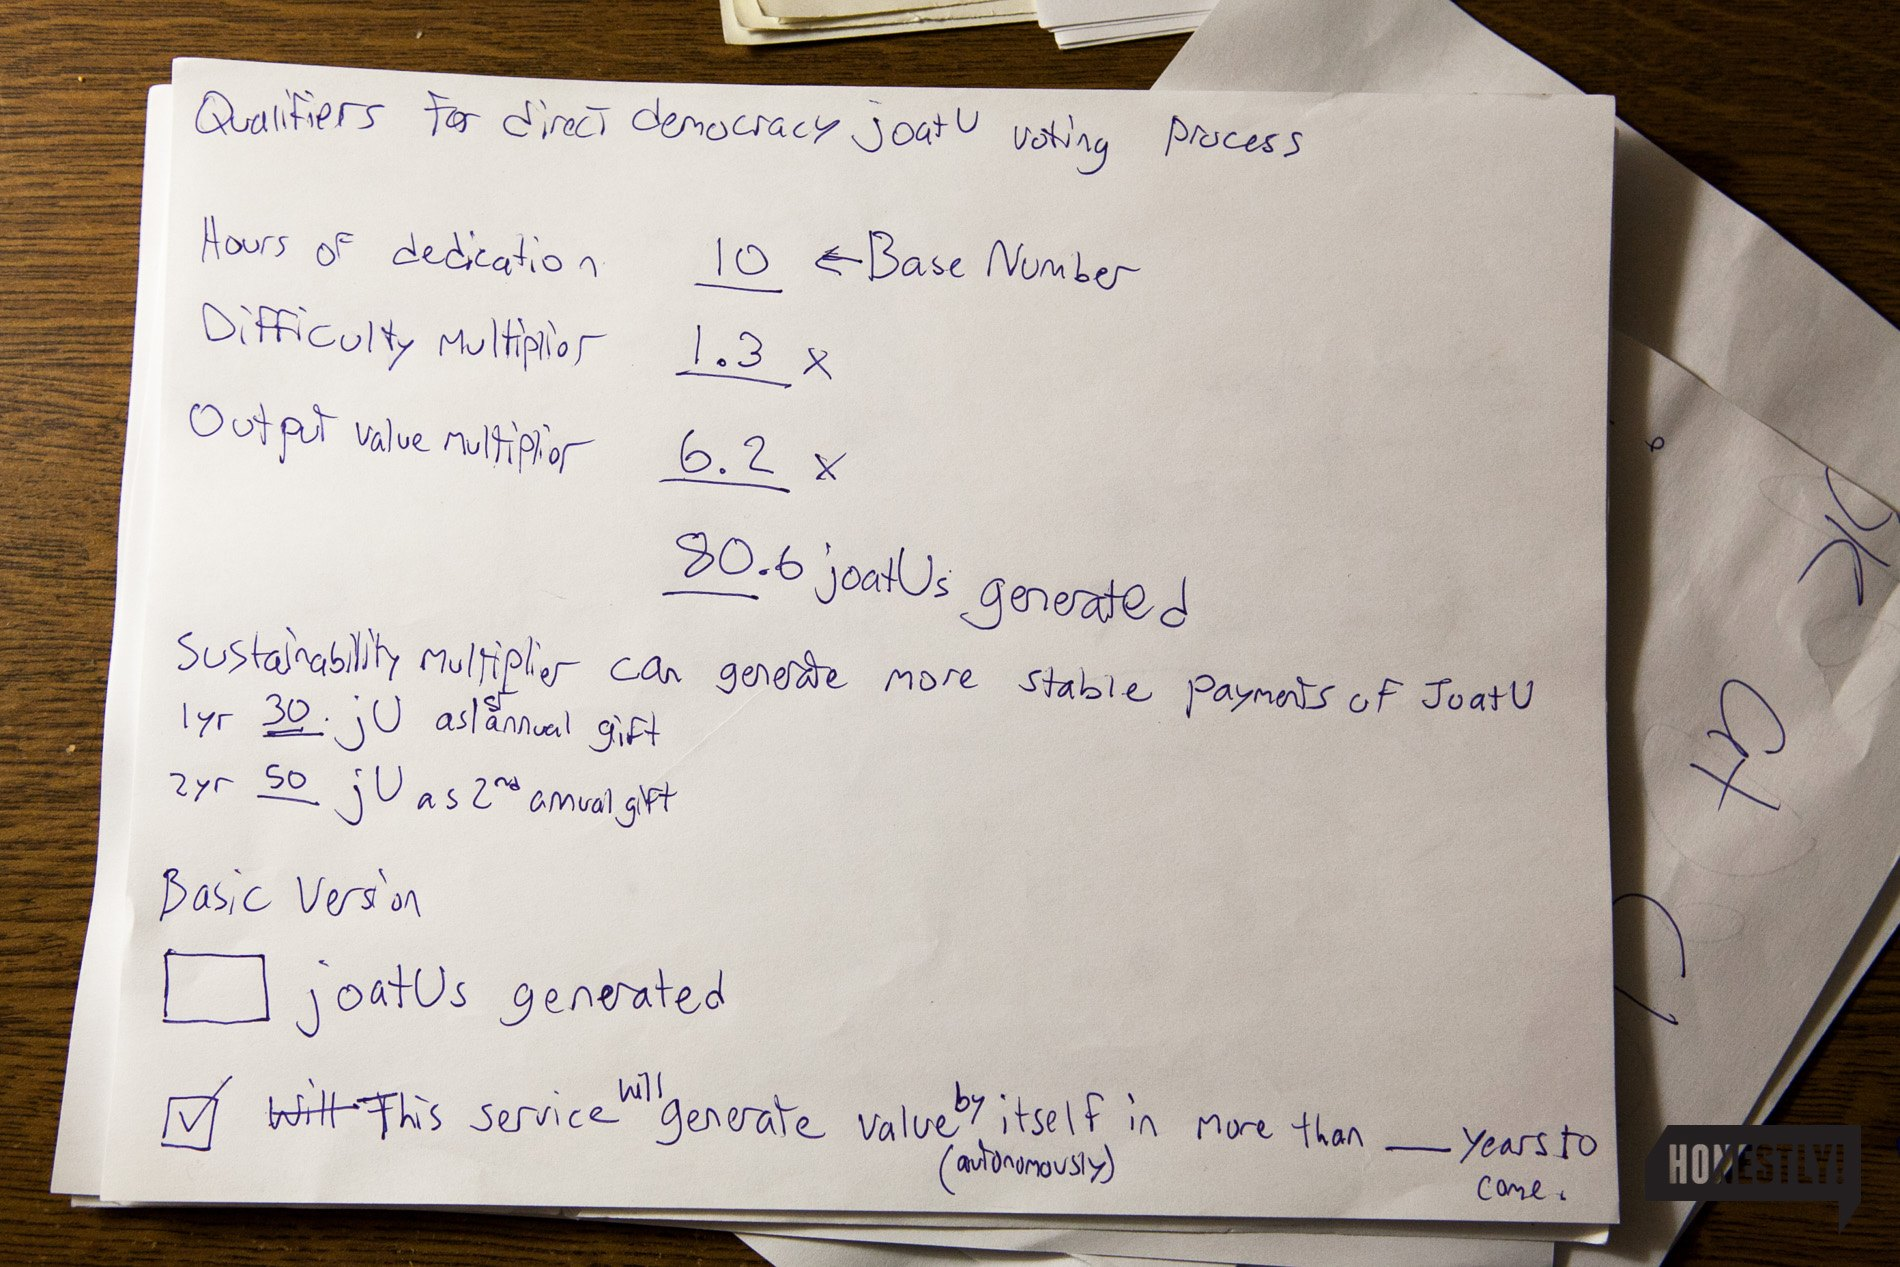 Qualifiers for direct democracy joatU voting process
Hours of dedication 10 ← Base Number
Difficulty Multiplior 1.3 x
Output value multiplior 6.2 x
80.6 joatUs generated
Sustainability Multiplier can generate more stable payments of JoatU
1yr 30. jU as 1st annual gift
2yr 50 jU as 2nd annual gift
Basic Version
joatUs generated
Will This service will generate value by itself in more than ___ years to
(autonomously)
come.
HONESTLY!